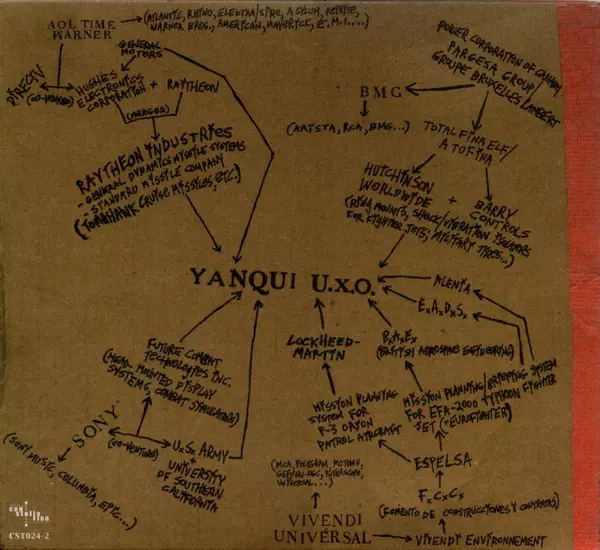 AOL TIME
WARNER
(ATLANTIC, RHINO, ELEKTRA/SIRE, ASYLUM, REPRISE,
WARNER BROS., AMERICAN, MAVERICK, E.M.I....)
GENERAL
MOTORS
DIRECTV
(CO-VENTURE)
HUGHES
ELECTRONICS
CORPORATION + RAYTHEON
(MERGER)
RAYTHEON INDUSTRIES
- GENERAL DYNAMICS MISSILE SYSTEMS
- STANDARD MISSILE COMPANY
(TOMAHAWK CRUISE MISSILES, ETC.)
POWER CORPORATION OF CANADA/
PARGESA GROUP/
GROUPE BRUXELLES LAMBERT
BMG
(ARISTA, RCA, BMG...)
TOTAL FINA ELF/
ATOFINA
HUTCHINSON
WORLDWIDE + BARRY
CONTROLS
(RING MOUNTS, SHOCK/VIBRATION ISOLATORS
FOR FIGHTER JETS; MILITARY TIRES...)
YANQUI U.X.O.
ALENIA
E.A.D.S.
LOCKHEED-
MARTIN
B.A.E.
(BRITISH AEROSPACE ENGINEERING)
FUTURE COMBAT
TECHNOLOGIES INC.
(HEAD MOUNTED DISPLAY
SYSTEMS, COMBAT SIMULATORS)
SONY
(CO-VENTURE)
U.S. ARMY
UNIVERSITY
OF SOUTHERN
CALIFORNIA
(SONY MUSIC, COLUMBIA, EPIC...)
MISSION PLANNING
SYSTEM FOR
P-3 ORION
PATROL AIRCRAFT
MISSION PLANNING/BRIEFING SYSTEM
FOR EFA-2000 TYPHOON FIGHTER
JET ("EUROFIGHTER")
ESPELSA
F.C.C.
(FOMENTO DE CONSTRUCCIONES Y CONTRATAS)
(MCA, POLYGRAM, MOTOWN,
GEFFEN-DGC, INTERSCOPE,
UNIVERSAL...)
VIVENDI
UNIVERSAL
VIVENDI ENVIRONNEMENT
constellation
CST024-2